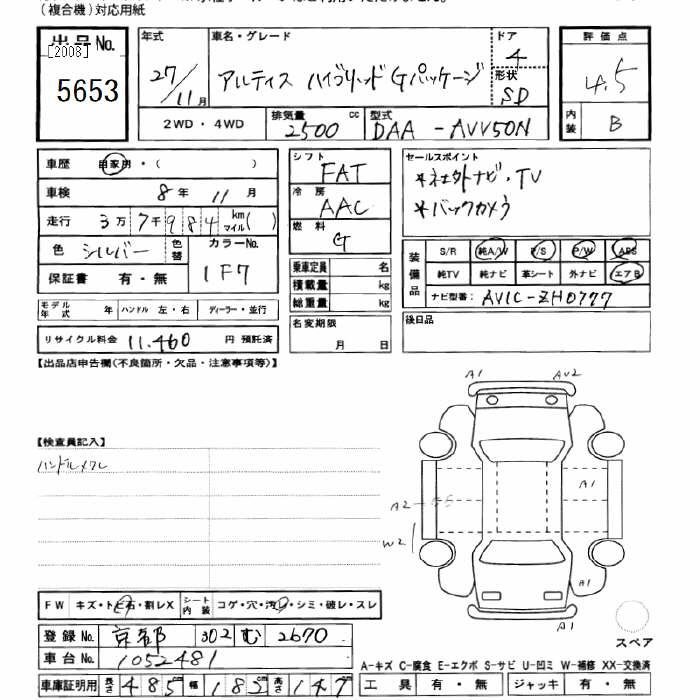 (複合機)対応用紙
出品No.
[2008]
5653
年式
27/11月
車名・グレード
アルティス ハイブリッド Gパッケージ
ドア
4
形状
SD
評価点
4.5
内装
B
2WD・4WD
排気量
2500 cc
型式
DAA-AVV50N
車歴 自家用・( )
車検 8年 11月
走行 3万7千984 km マイル( )
色 シルバー 色替
カラーNo.
1F7
保証書 有・無
モデル年式 年 ハンドル 左・右 ディーラー・並行
リサイクル料金 11,460 円 預託済
シフト
FAT
冷房
AAC
燃料
G
乗車定員 名
積載量 kg
総重量 kg
名変期限
月 日
セールスポイント
*社外ナビ・TV
*バックカメラ
装備品
S/R 純A/W P/S P/W ABS
純TV 純ナビ 革シート 外ナビ エアB
ナビ型番: AVIC-ZH0777
後日品
【出品店申告欄(不良箇所・欠品・注意事項等)】
【検査員記入】
ハンドルスレ
A1 AV2
A1
A2
W2
A1
A1
スペア
FW キズ・トビ石・割レX
シート内装 コゲ・穴・汚レ・シミ・破レ・スレ
登録No. 京都 302 む 2670
車台No. 1052481
車庫証明用 長さ 485cm 幅 182cm 高さ 147
A-キズ C-腐食 E-エクボ S-サビ U-凹ミ W-補修 XX-交換済
工具 有・無 ジャッキ 有・無